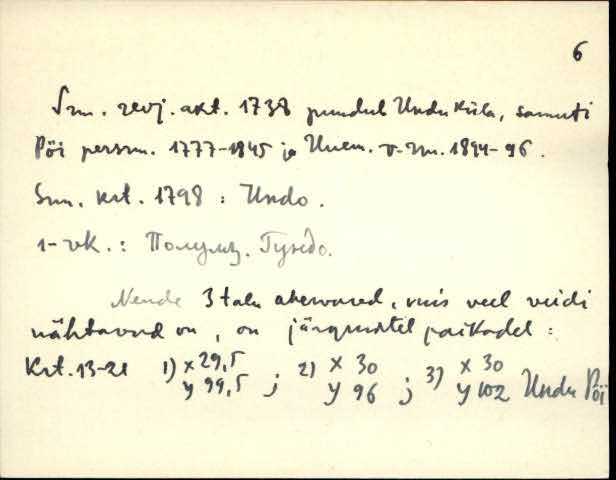 6
Srn. revj. akt. 1738 puudub Undu küla, samuti
Pöi persm. 1777-1845 ja Unem. v-rm. 1894-96.
Srn. krt. 1798 : Undo.
1-vk. : Полумз. Гундо.
Nende 3 talu asemed, mis veel veidi
nähtavad on, on järgmistel paikadel :
Krt. 13-21 1) x 29,5 ; 2) x 30 ; 3) x 30
y 99,5 y 96 y 102 Undu Pöi